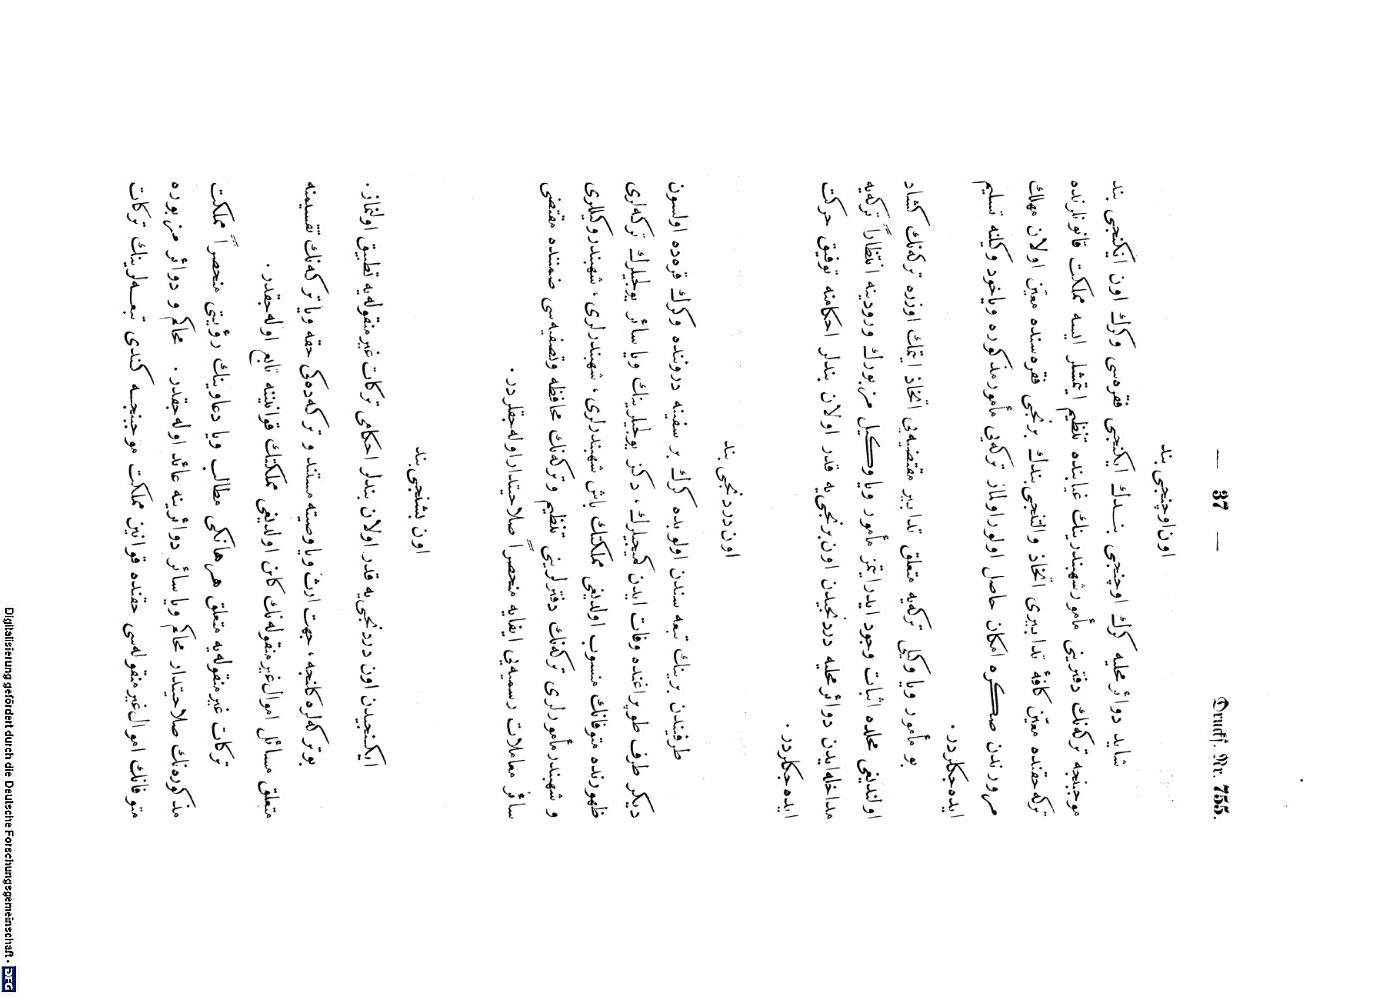 — 37 —
Drucks. Nr. 755.
اون اوچنجی بند
شاید دوائر محلیه كرك اوچنجی بندك ایكنجی فقره‌سی وكرك اون ایكنجی بند
موجبنجه تركه‌نك دفترینی مأمور شهبندرینك غیابنده تنظیم ایتمشلر ایسه مملكت قانونلرنده
تركه حقنده معین كافهٔ تدابیری اتخاذ والتنجی بندك برنجی فقره‌سنده معین اولان مهلك
مرورندن صكره امكان حاصل اولور اولماز تركه‌یی مأمور مذكوره ویاخود وكلنه تسلیم
ایده‌جكلردر.
بو مأمور ویا وكیلی تركه‌یه متعلق تدابیر مقتضیه‌یی اتخاذ ایتمك اوزره تركه‌نك كشاد
اولندیغی محلده اثبات وجود ایدر ایتمز مأمور ویا وكیل مزبورك ورودینه انتظاراً تركه‌یه
مداخله ایدن دوائر محلیه دردنجیدن اون برنجی‌یه قدر اولان بندلر احكامنه توفیق حركت
ایده‌جكلردر.
اون دردنجی بند
طرفیندن برینك تبعه سندن اولوبده كرك بر سفینه دروننده وكرك قره‌ده اولسون
دیگر طرف طوپراغنده وفات ایدن گمیجیلرك، دكز یولجیلرینك ویا سائر یولجیلرك تركه‌لری
ظهورنده متوفانك منسوب اولدیغی مملكتك باش شهبندرلری، شهبندرلری، شهبندر وكیللری
و شهبندر مأمورلری تركه‌نك دفترلرینی تنظیم و تركه‌نك محافظه وتصفیه‌سی ضمننده مقتضی
سائر معاملات رسمیه‌یی ایفایه منحصراً صلاحیتدار اوله‌جقلردر.
اون بشنجی بند
ایكنجیدن اون دردنجی‌یه قدر اولان بندلر احكامی تركات غیر منقوله‌یه تطبیق اولنماز.
بو تركه‌لره كلنجه، جهت ارث ویا وصیته مستند و تركه‌ده‌كی حقه ویا تركه‌نك تقسیمنه
متعلق مسائل اموال غیر منقوله‌نك كائن اولدیغی مملكتك قوانیننه تابع اوله‌جقدر.
تركات غیر منقوله‌یه متعلق هر هانكی مطالب ویا دعاوینك رؤیتی منحصراً مملكت
مذكوره‌نك صلاحیتدار محاكم ویا سائر دوائرینه عائد اوله‌جقدر. محاكم و دوائر مزبوره
متوفانك اموال غیر منقوله‌سی حقنده قوانین مملكت موجبنجه كندی تبعه‌لرینك تركات
Digitalisierung gefördert durch die Deutsche Forschungsgemeinschaft - DFG